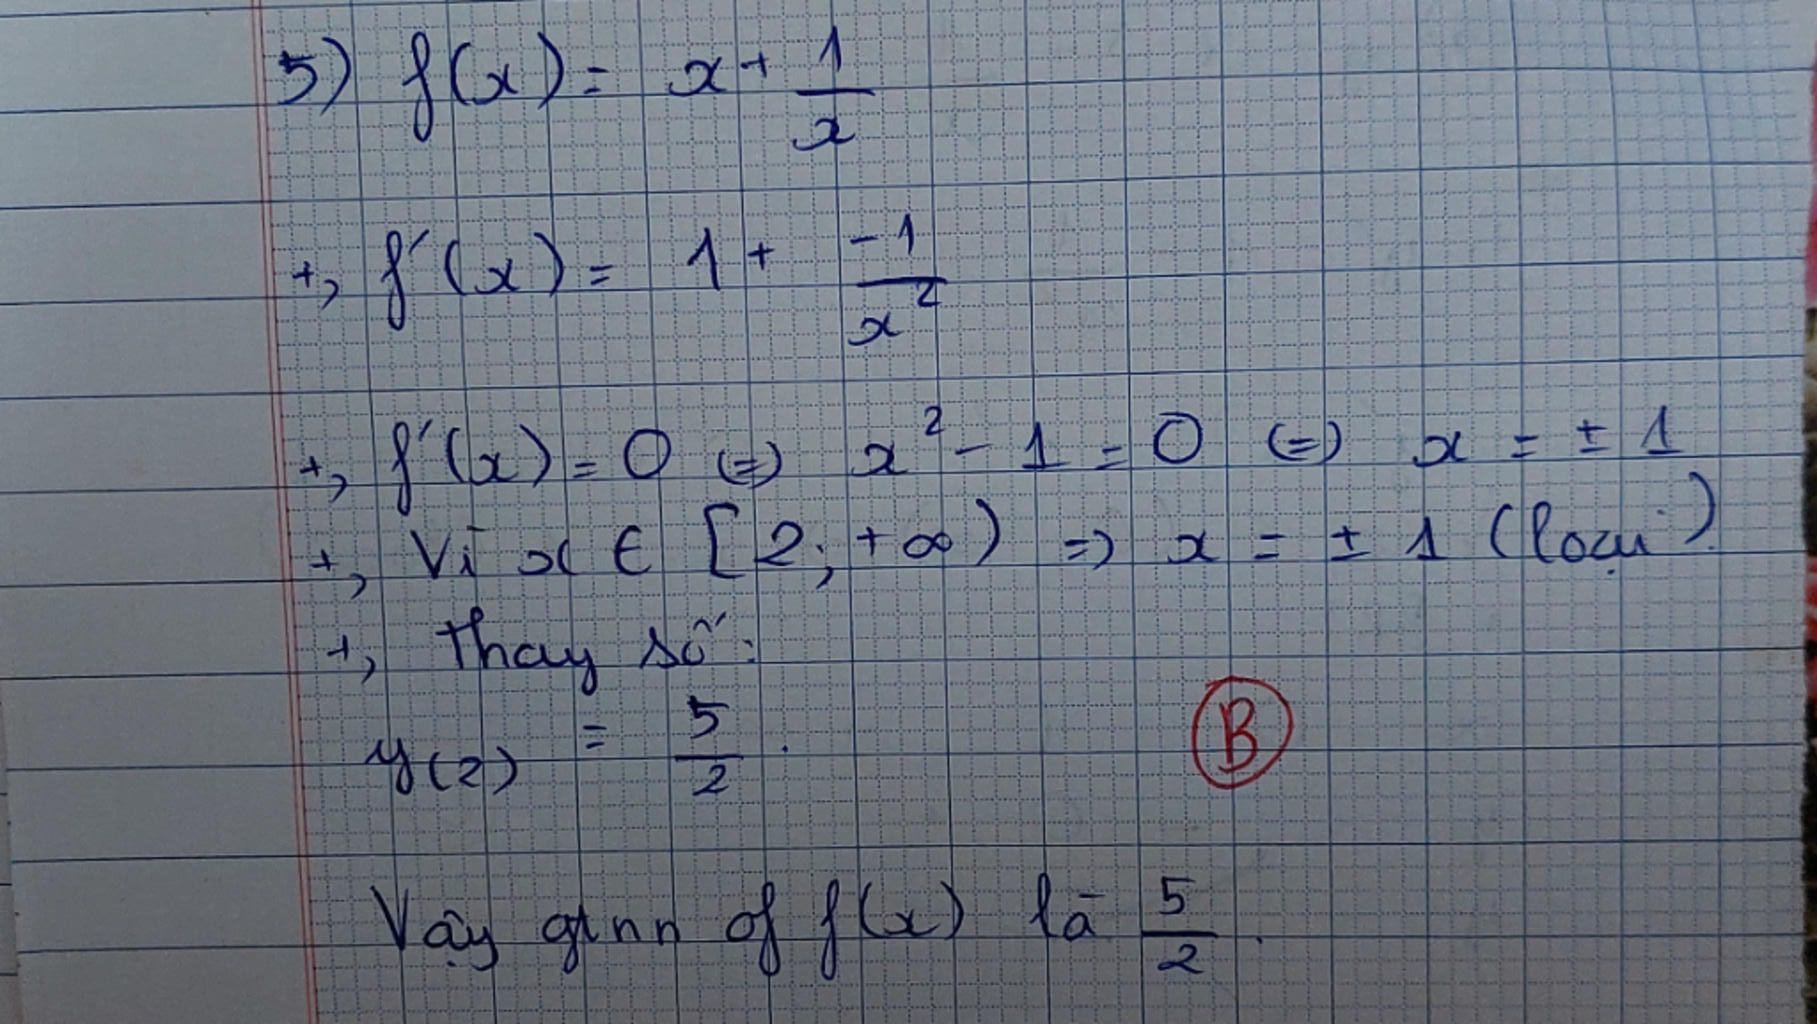 5) f(x) = x + 1/x
+, f'(x) = 1 + -1/x²
+, f'(x) = 0 (=) x² - 1 = 0 (=) x = ± 1
+, Vì x ∈ [2; +∞) => x = ± 1 (loại)
+, Thay số:
y(2) = 5/2.
B
Vậy gtnn of f(x) là 5/2.